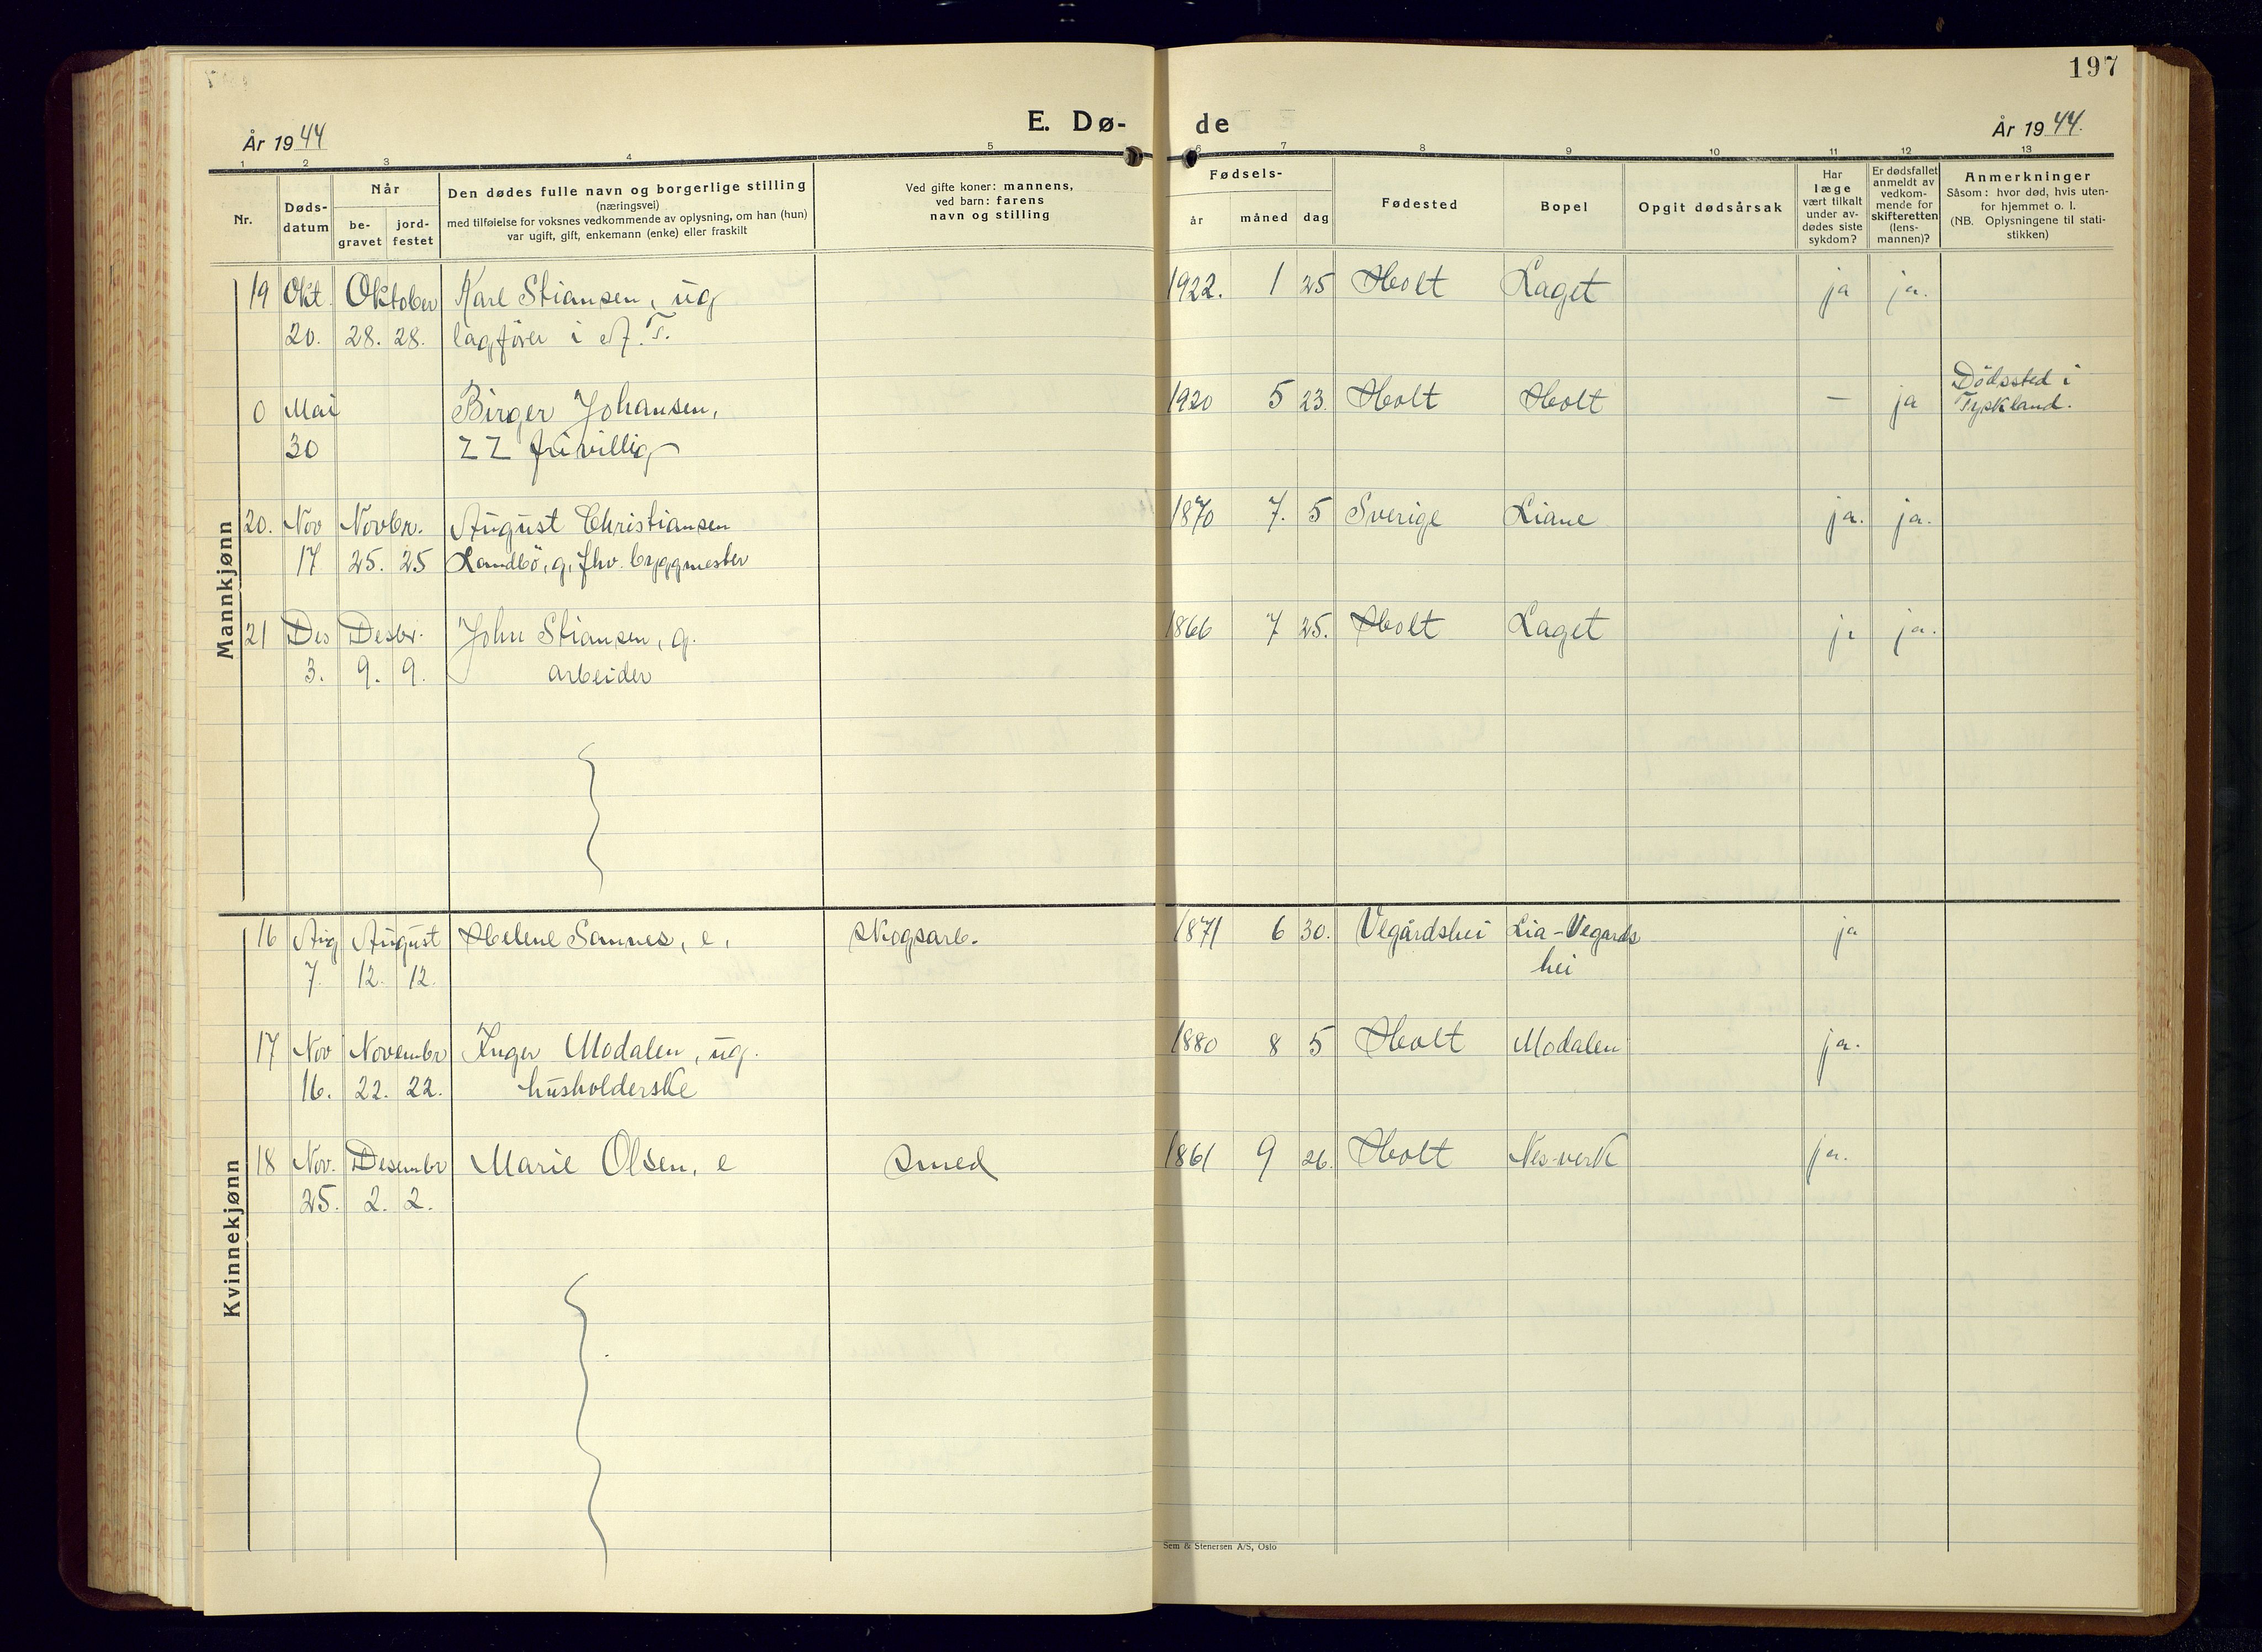 197
E. Dø- de
År 1944
År 1944.
1 2 3 4 5 6 7 8 9 10 11 12 13
Nr.
Døds-
datum
Når
be-
gravet
jord-
festet
Den dødes fulle navn og borgerlige stilling
(næringsvei)
med tilføielse for voksnes vedkommende av oplysning, om han (hun)
var ugift, gift, enkemann (enke) eller fraskilt
Ved gifte koner: mannens,
ved barn: farens
navn og stilling
Fødsels-
år måned dag
Fødested
Bopel
Opgit dødsårsak
Har
læge
vært tilkalt
under av-
dødes siste
sykdom?
Er dødsfallet
anmeldt av
vedkom-
mende for
skifteretten
(lens-
mannen)?
Anmerkninger
Såsom: hvor død, hvis uten-
for hjemmet o. l.
(NB. Oplysningene til stati-
stikken)
Mannkjønn
19 Okt. Oktober Karl Stiansen, ug 1922. 1 25 Holt Laget ja ja.
20. 28. 28. lagfører i A.T.
0 Mai Birger Johansen, 1920 5 23. Holt Holt — ja Dödssted i
Tyskland.
30 frivillig
20. Nov Novbr. August Christiansen 1870 7. 5 Sverige Liane ja. ja.
17 25. 25 Landbö, g, fhv. byggmester
21 Des Desbr. John Stiansen, g. 1866 7 25. Holt Laget ja ja.
3. 9. 9. arbeider
Kvinnekjønn
16 Aug August Helene Sannes, e, skogsarb. 1871 6 30. Vegårdshei Lia-Vegards ja
7. 12. 12. hei
17 Nov Novembr Inger Modalen, ug. 1880 8 5 Holt Modalen ja.
16. 22. 22. husholderske
18 Nov. Desembr Marie Olsen, e smed 1861 9 26. Holt Nes-verk ja.
25. 2. 2.
Sem & Stenersen A/S, Oslo